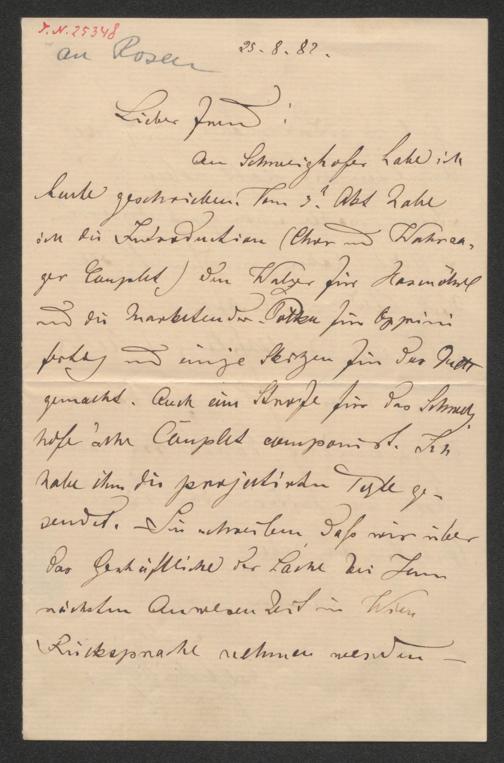 I.N. 25348
an Rosen
25.8.82.
Lieber Freund!
An Schweighofer habe ich
heute geschrieben. Vom 3t Akt habe
ich die Introduction (Chor und
ger Couplet) den Walzer für
und die Marketender-Polka für
fertig und einige Skizzen für das Duett
gemacht. Auch eine Strofe für das Schweig
hofer'sche Couplet componirt. Ich
habe ihm die projectirten Texte ge-
sendet. Sie schreiben daß wir über
das Geschäftliche der Sache bei Ihrer
nächsten Anwesenheit in Wien
Rücksprache nehmen werden —